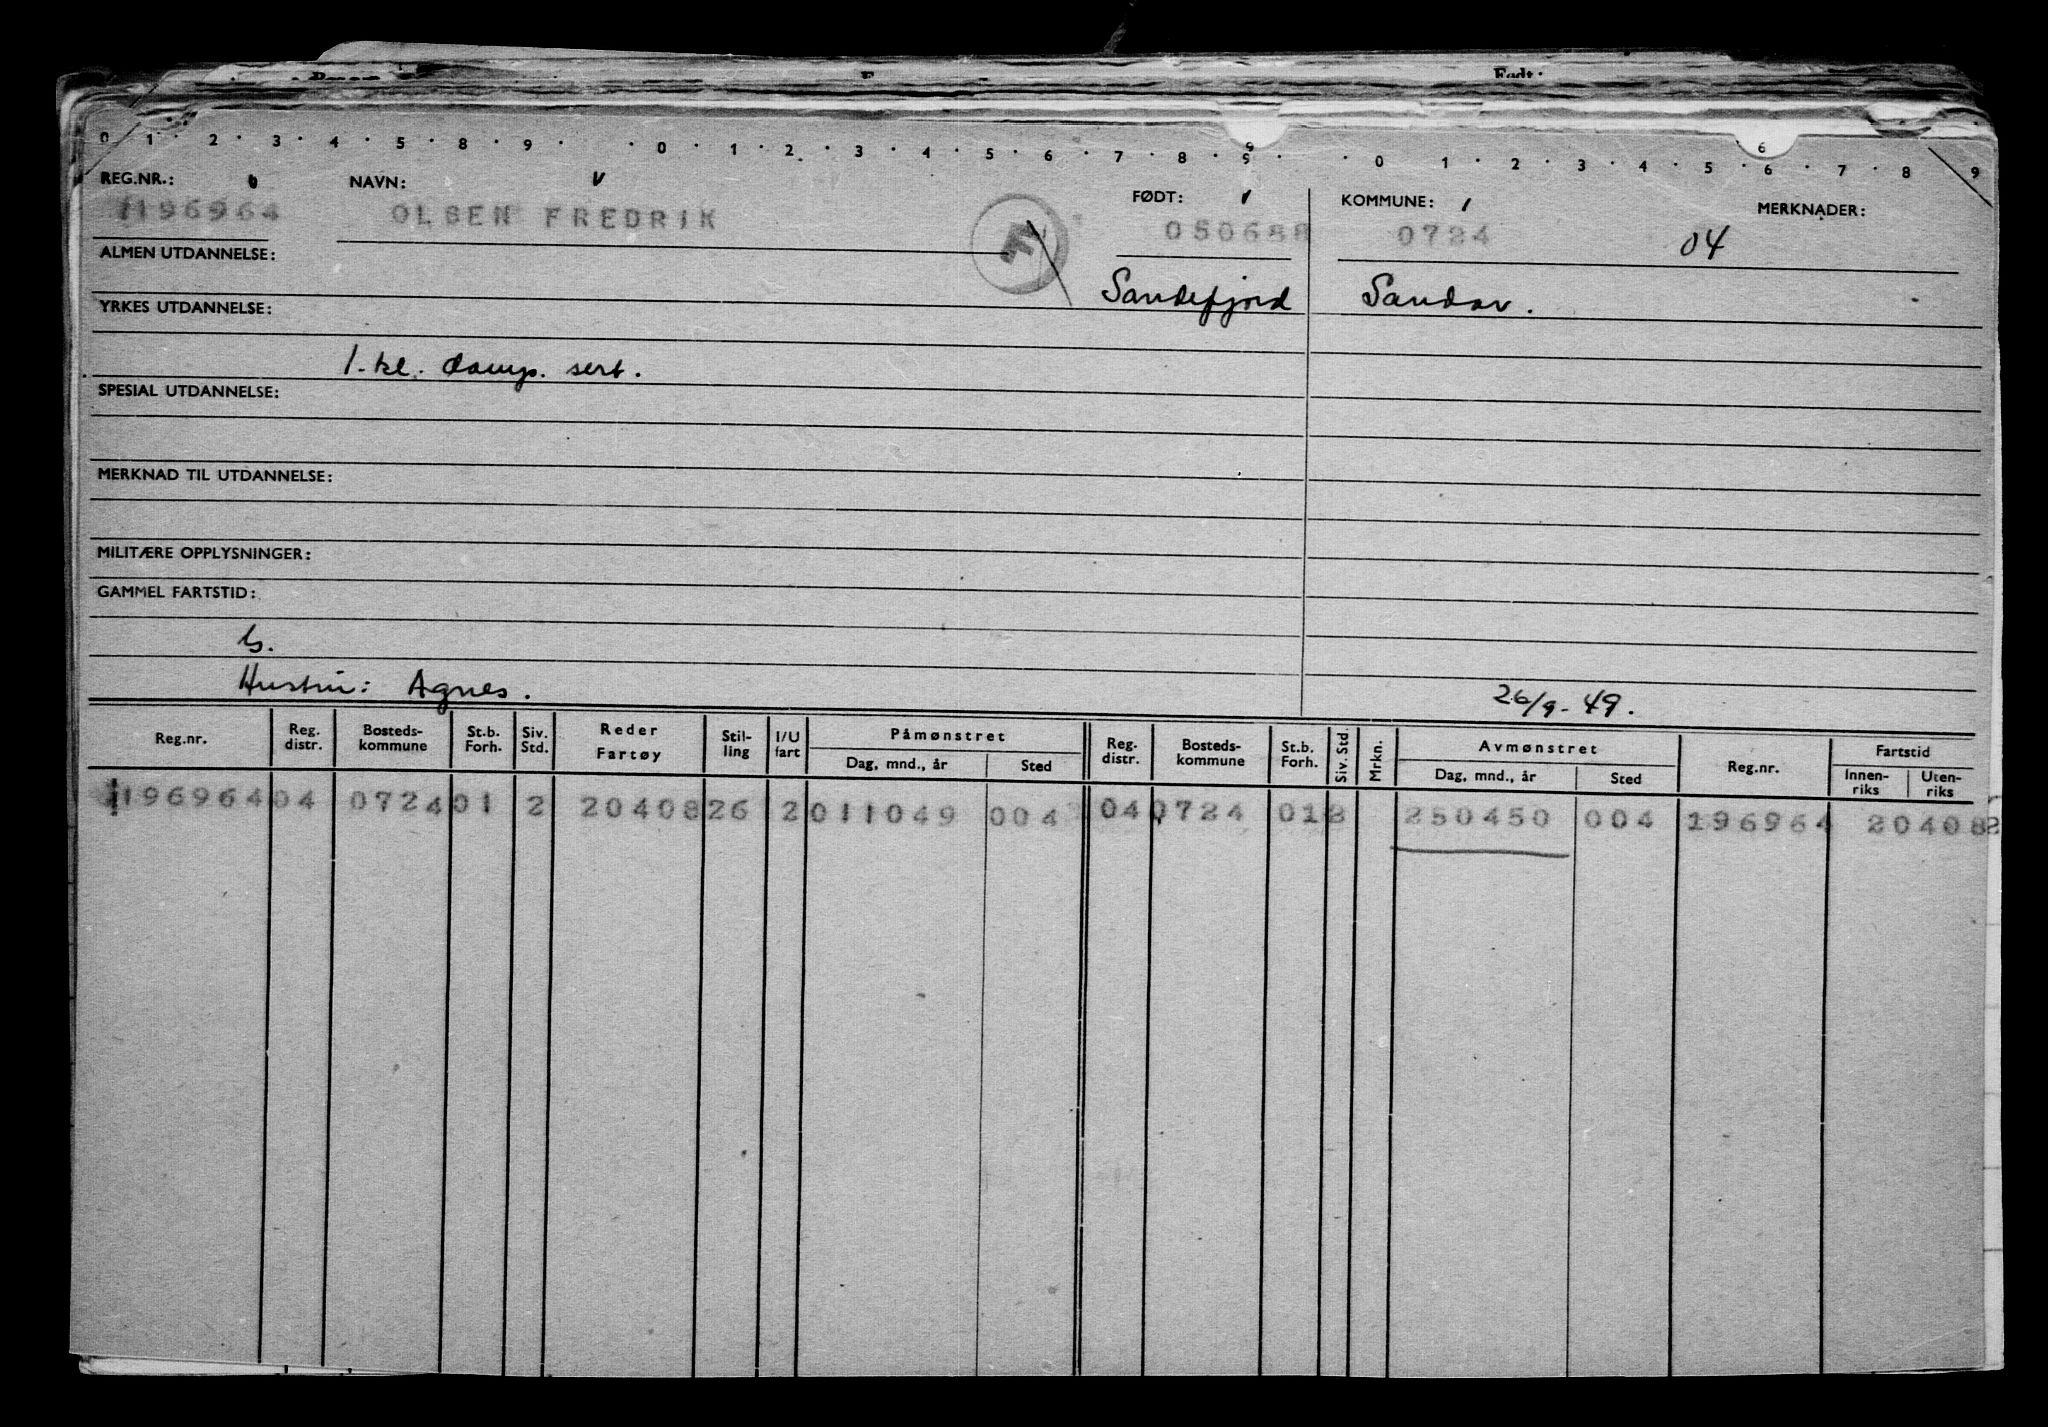 0 1 2 3 4 5 8 9 0 1 2 3 4 5 6 7 8 9 0 1 2 3 4 5 6 7 8 9
REG.NR.: NAVN: FØDT: KOMMUNE: MERKNADER:
196964 OLSEN FREDRIK 050688 0724 04
ALMEN UTDANNELSE:
Sandefjord Sandar.
YRKES UTDANNELSE:
1. kl. damp. sert.
SPESIAL UTDANNELSE:
MERKNAD TIL UTDANNELSE:
MILITÆRE OPPLYSNINGER:
GAMMEL FARTSTID:
G.
Hustru: Agnes. 26/9-49.
Reg.nr. Reg. distr. Bosteds-kommune St.b. Forh. Siv. Std. Reder Fartøy Stil-ling I/U fart Påmønstret Dag, mnd., år Sted Reg. distr. Bosteds-kommune St.b. Forh. Siv. Std. Mrkn. Avmønstret Dag, mnd., år Sted Reg.nr. Fartstid Innen-riks Uten-riks
196964 04 0724 01 2 20408 26 2 011049 004 04 0724 01 2 250450 004 196964 20408 2